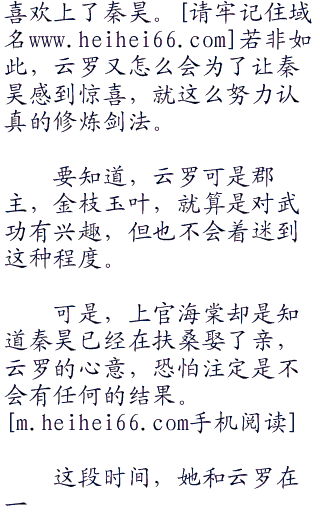 喜欢上了秦昊。[请牢记住域
名www.heihei66.com]若非如
此，云罗又怎么会为了让秦
昊感到惊喜，就这么努力认
真的修炼剑法。
要知道，云罗可是郡
主，金枝玉叶，就算是对武
功有兴趣，但也不会着迷到
这种程度。
可是，上官海棠却是知
道秦昊已经在扶桑娶了亲，
云罗的心意，恐怕注定是不
会有任何的结果。
[m.heihei66.com手机阅读]
这段时间，她和云罗在
一